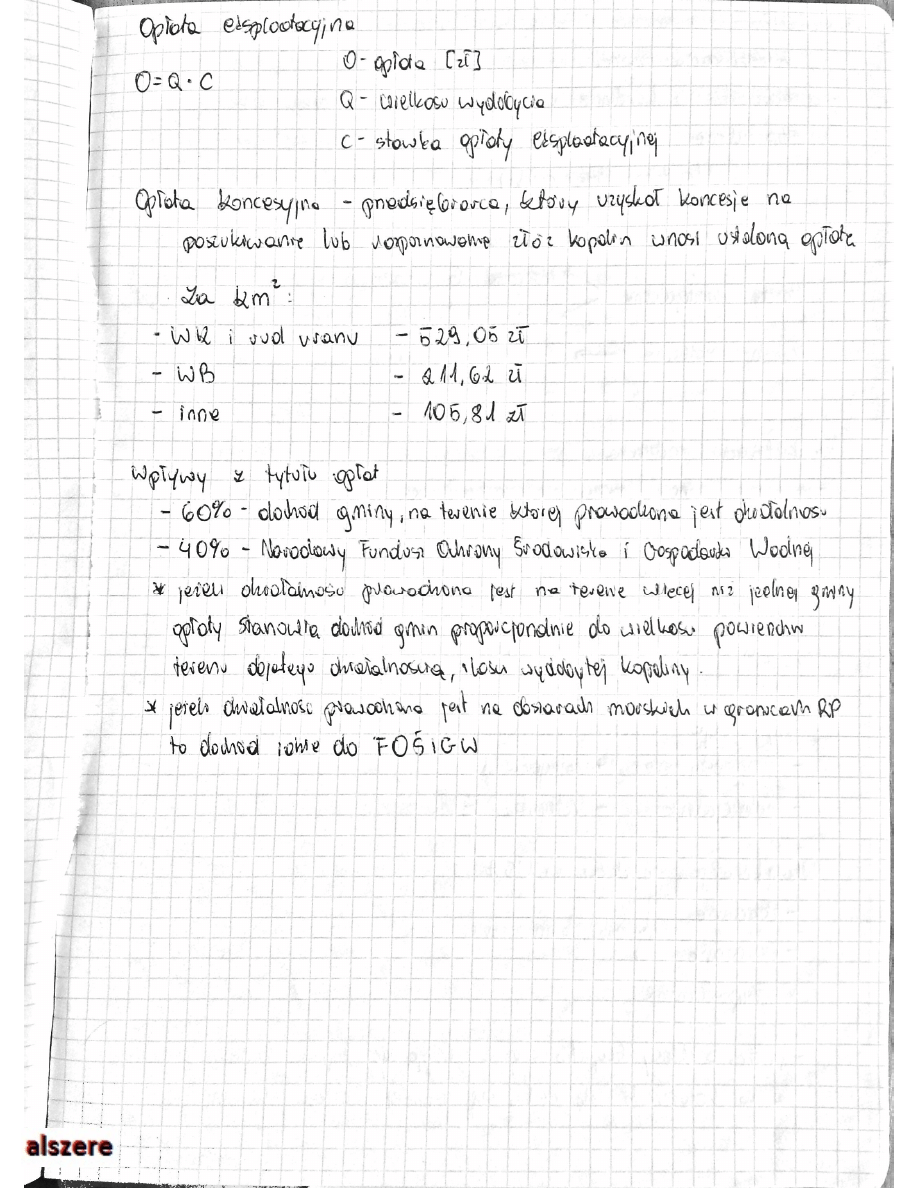 Opłata eksploatacyjna
O = Q · C
O - opłata [zł]
Q - wielkość wydobycia
C - stawka opłaty eksploatacyjnej
Opłata koncesyjna - przedsiębiorca, który uzyskał koncesje na
poszukiwanie lub rozpoznawanie złóż kopalin wnosi ustaloną opłatę
Za km²:
- WK i rud uranu - 529,05 zł
- WB - 211,62 zł
- inne - 105,81 zł
Wpływy z tytułu opłat
- 60% - dochód gminy, na terenie której prowadzona jest działalność
- 40% - Narodowy Fundusz Ochrony Środowiska i Gospodarki Wodnej
* jeżeli działalność prowadzona jest na terenie więcej niż jednej gminy
opłaty stanowią dochód gmin proporcjonalnie do wielkości powierzchni
terenu objętego działalnością, ilości wydobytej kopaliny.
* jeżeli działalność prowadzona jest na obszarach morskich w granicach RP
to dochód idzie do FOŚiGW
alszere